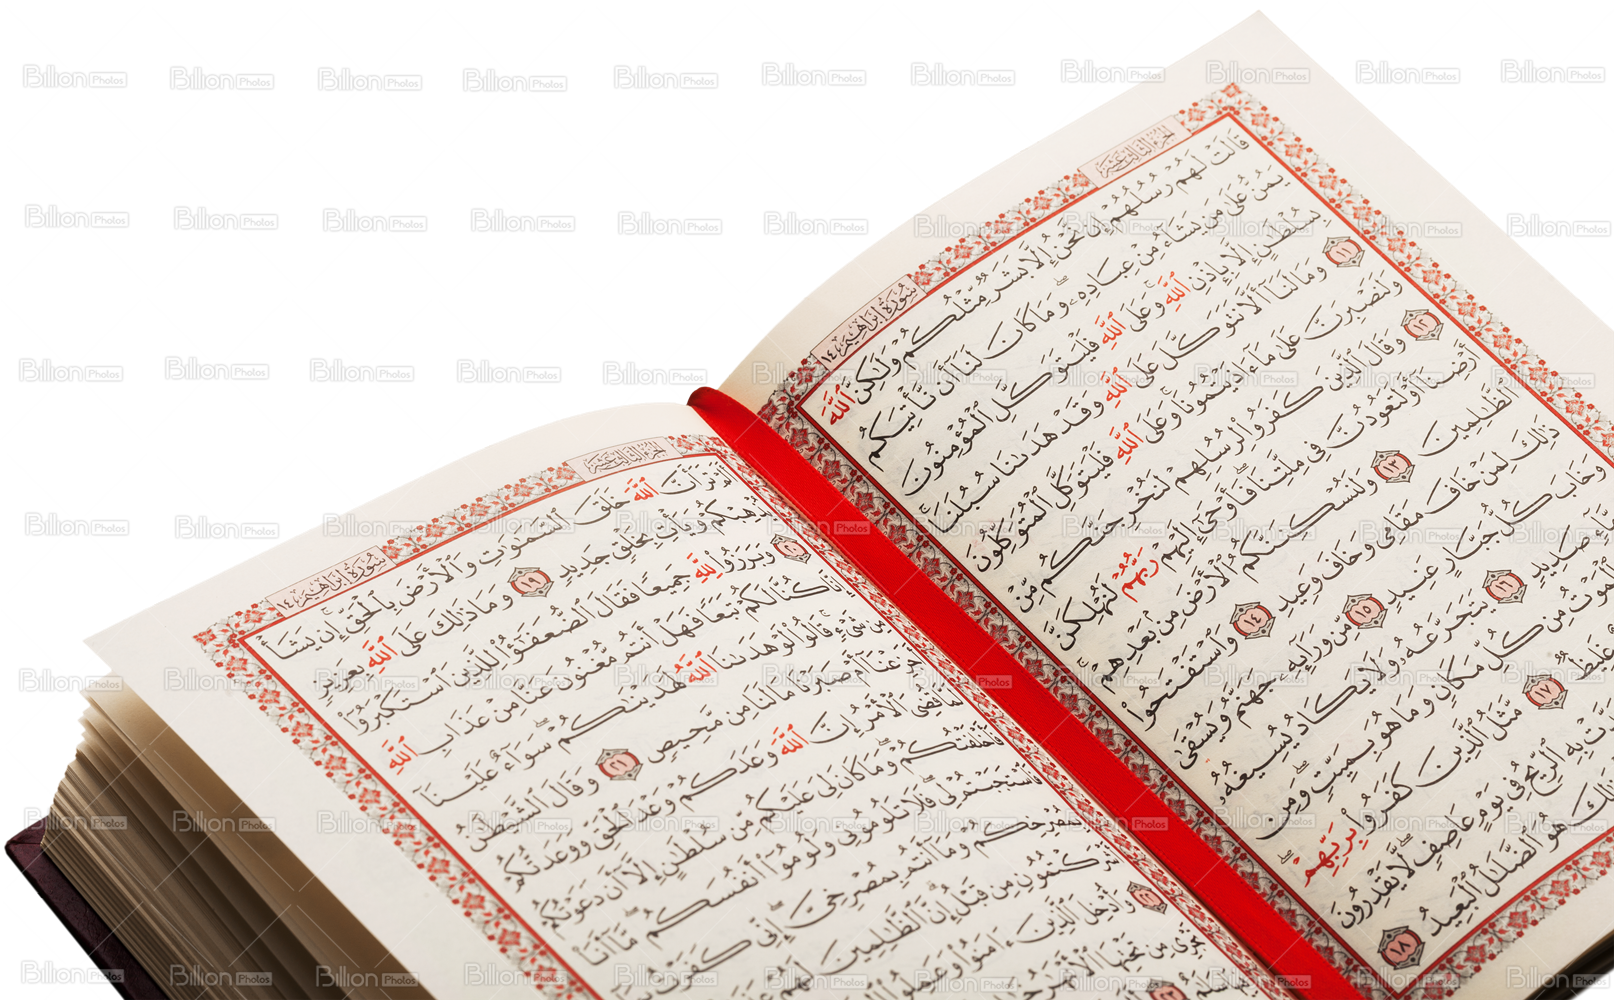 الجزء الثالث عشر
سورة إبراهيم ١٤
قَالَتْ لَهُمْ رُسُلُهُمْ إِن نَّحْنُ إِلَّا بَشَرٌ مِّثْلُكُمْ وَلَٰكِنَّ ٱللَّهَ
يَمُنُّ عَلَىٰ مَن يَشَآءُ مِنْ عِبَادِهِۦ وَمَا كَانَ لَنَآ أَن نَّأْتِيَكُم
بِسُلْطَٰنٍ إِلَّا بِإِذْنِ ٱللَّهِ وَعَلَى ٱللَّهِ فَلْيَتَوَكَّلِ ٱلْمُؤْمِنُونَ
١١ وَمَا لَنَآ أَلَّا نَتَوَكَّلَ عَلَى ٱللَّهِ وَقَدْ هَدَىٰنَا سُبُلَنَا
وَلَنَصْبِرَنَّ عَلَىٰ مَآ ءَاذَيْتُمُونَا وَعَلَى ٱللَّهِ فَلْيَتَوَكَّلِ ٱلْمُتَوَكِّلُونَ
١٢ وَقَالَ ٱلَّذِينَ كَفَرُوا۟ لِرُسُلِهِمْ لَنُخْرِجَنَّكُم مِّنْ
أَرْضِنَآ أَوْ لَتَعُودُنَّ فِى مِلَّتِنَا فَأَوْحَىٰٓ إِلَيْهِمْ رَبُّهُمْ لَنُهْلِكَنَّ
ٱلظَّٰلِمِينَ ١٣ وَلَنُسْكِنَنَّكُمُ ٱلْأَرْضَ مِنۢ بَعْدِهِمْ
ذَٰلِكَ لِمَنْ خَافَ مَقَامِى وَخَافَ وَعِيدِ ١٤ وَٱسْتَفْتَحُوا۟
وَخَابَ كُلُّ جَبَّارٍ عَنِيدٍ ١٥ مِّن وَرَآئِهِۦ جَهَنَّمُ وَيُسْقَىٰ
صَدِيدٍ ١٦ يَتَجَرَّعُهُۥ وَلَا يَكَادُ يُسِيغُهُۥ
ٱلْمَوْتُ مِن كُلِّ مَكَانٍ وَمَا هُوَ بِمَيِّتٍ وَمِن
غَلِيظٌ ١٧ مَّثَلُ ٱلَّذِينَ كَفَرُوا۟ بِرَبِّهِمْ
بِهِ ٱلرِّيحُ فِى يَوْمٍ عَاصِفٍ لَّا يَقْدِرُونَ
هُوَ ٱلضَّلَٰلُ ٱلْبَعِيدُ ١٨
الجزء الثالث عشر
سورة إبراهيم ١٤
أَلَمْ تَرَ أَنَّ ٱللَّهَ خَلَقَ ٱلسَّمَٰوَٰتِ وَٱلْأَرْضَ بِٱلْحَقِّ إِن يَشَأْ
يُذْهِبْكُمْ وَيَأْتِ بِخَلْقٍ جَدِيدٍ ١٩ وَمَا ذَٰلِكَ عَلَى ٱللَّهِ بِعَزِيزٍ
٢٠ وَبَرَزُوا۟ لِلَّهِ جَمِيعًا فَقَالَ ٱلضُّعَفَٰٓؤُا۟ لِلَّذِينَ ٱسْتَكْبَرُوٓا۟
إِنَّا كُنَّا لَكُمْ تَبَعًا فَهَلْ أَنتُم مُّغْنُونَ عَنَّا مِنْ عَذَابِ ٱللَّهِ
مِن شَىْءٍ قَالُوا۟ لَوْ هَدَىٰنَا ٱللَّهُ لَهَدَيْنَٰكُمْ سَوَآءٌ عَلَيْنَآ
أَجَزِعْنَآ أَمْ صَبَرْنَا مَا لَنَا مِن مَّحِيصٍ ٢١ وَقَالَ ٱلشَّيْطَٰنُ
لَمَّا قُضِىَ ٱلْأَمْرُ إِنَّ ٱللَّهَ وَعَدَكُمْ وَعْدَ ٱلْحَقِّ وَوَعَدتُّكُمْ
فَأَخْلَفْتُكُمْ وَمَا كَانَ لِىَ عَلَيْكُم مِّن سُلْطَٰنٍ إِلَّآ أَن دَعَوْتُكُمْ
فَٱسْتَجَبْتُمْ لِى فَلَا تَلُومُونِى وَلُومُوٓا۟ أَنفُسَكُم مَّآ أَنَا۠
بِمُصْرِخِكُمْ وَمَآ أَنتُم بِمُصْرِخِىَّ إِنِّى كَفَرْتُ بِمَآ
أَشْرَكْتُمُونِ مِن قَبْلُ إِنَّ ٱلظَّٰلِمِينَ لَهُمْ
٢٢ وَأُدْخِلَ ٱلَّذِينَ ءَامَنُوا۟ وَعَمِلُوا۟
تَجْرِى مِن تَحْتِهَا ٱلْأَنْهَٰرُ